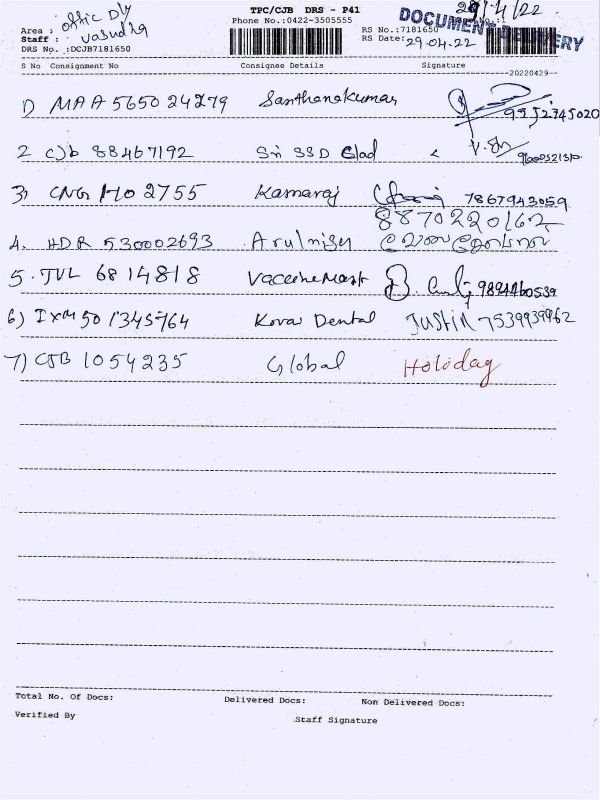 TPC/CJB DRS - P41
29/4/22
Phone No.:0422-3505555
DOCUMENT DELIVERY
Area : offic Dly
Staff : Vasudha
RS No.:7181650
DRS No. :DCJB7181650
RS Date:29-04-22
S No Consignment No Consignee Details Signature
20220429
1) MAA 565024279 Santhanakumar 9952745020
2 CJb 88467192 Sri SSD Glad
3) CNG 1402755 Kamaraj 7867943059
8870220162
4. HDR 530002693 Arulniser
5. TVL 6814818 Vaccinemart 9894460539
6) IXM 501345764 Kovai Dental Justin 7539939962
7) CJB 1054235 Global Holiday
Total No. Of Docs: Delivered Docs: Non Delivered Docs:
Verified By Staff Signature